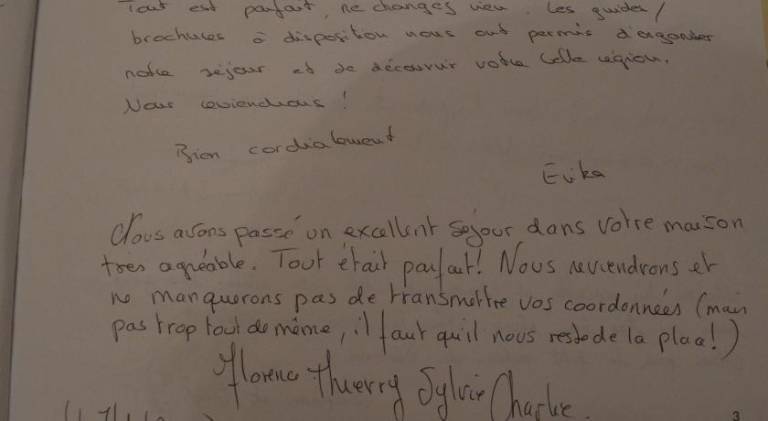 Tout est parfait, ne changes rien. Les guides/
brochures à disposition nous ont permis d'organiser
notre séjour et de découvrir votre belle région.
Nous reviendrons !
Bien cordialement
Erika
Nous avons passé un excellent séjour dans votre maison
très agréable. Tout était parfait! Nous reviendrons et
ne manquerons pas de transmettre vos coordonnées (mais
pas trop tout de même, il faut qu'il nous reste de la place!)
Florence Thierry Sylvie Charlie.
3